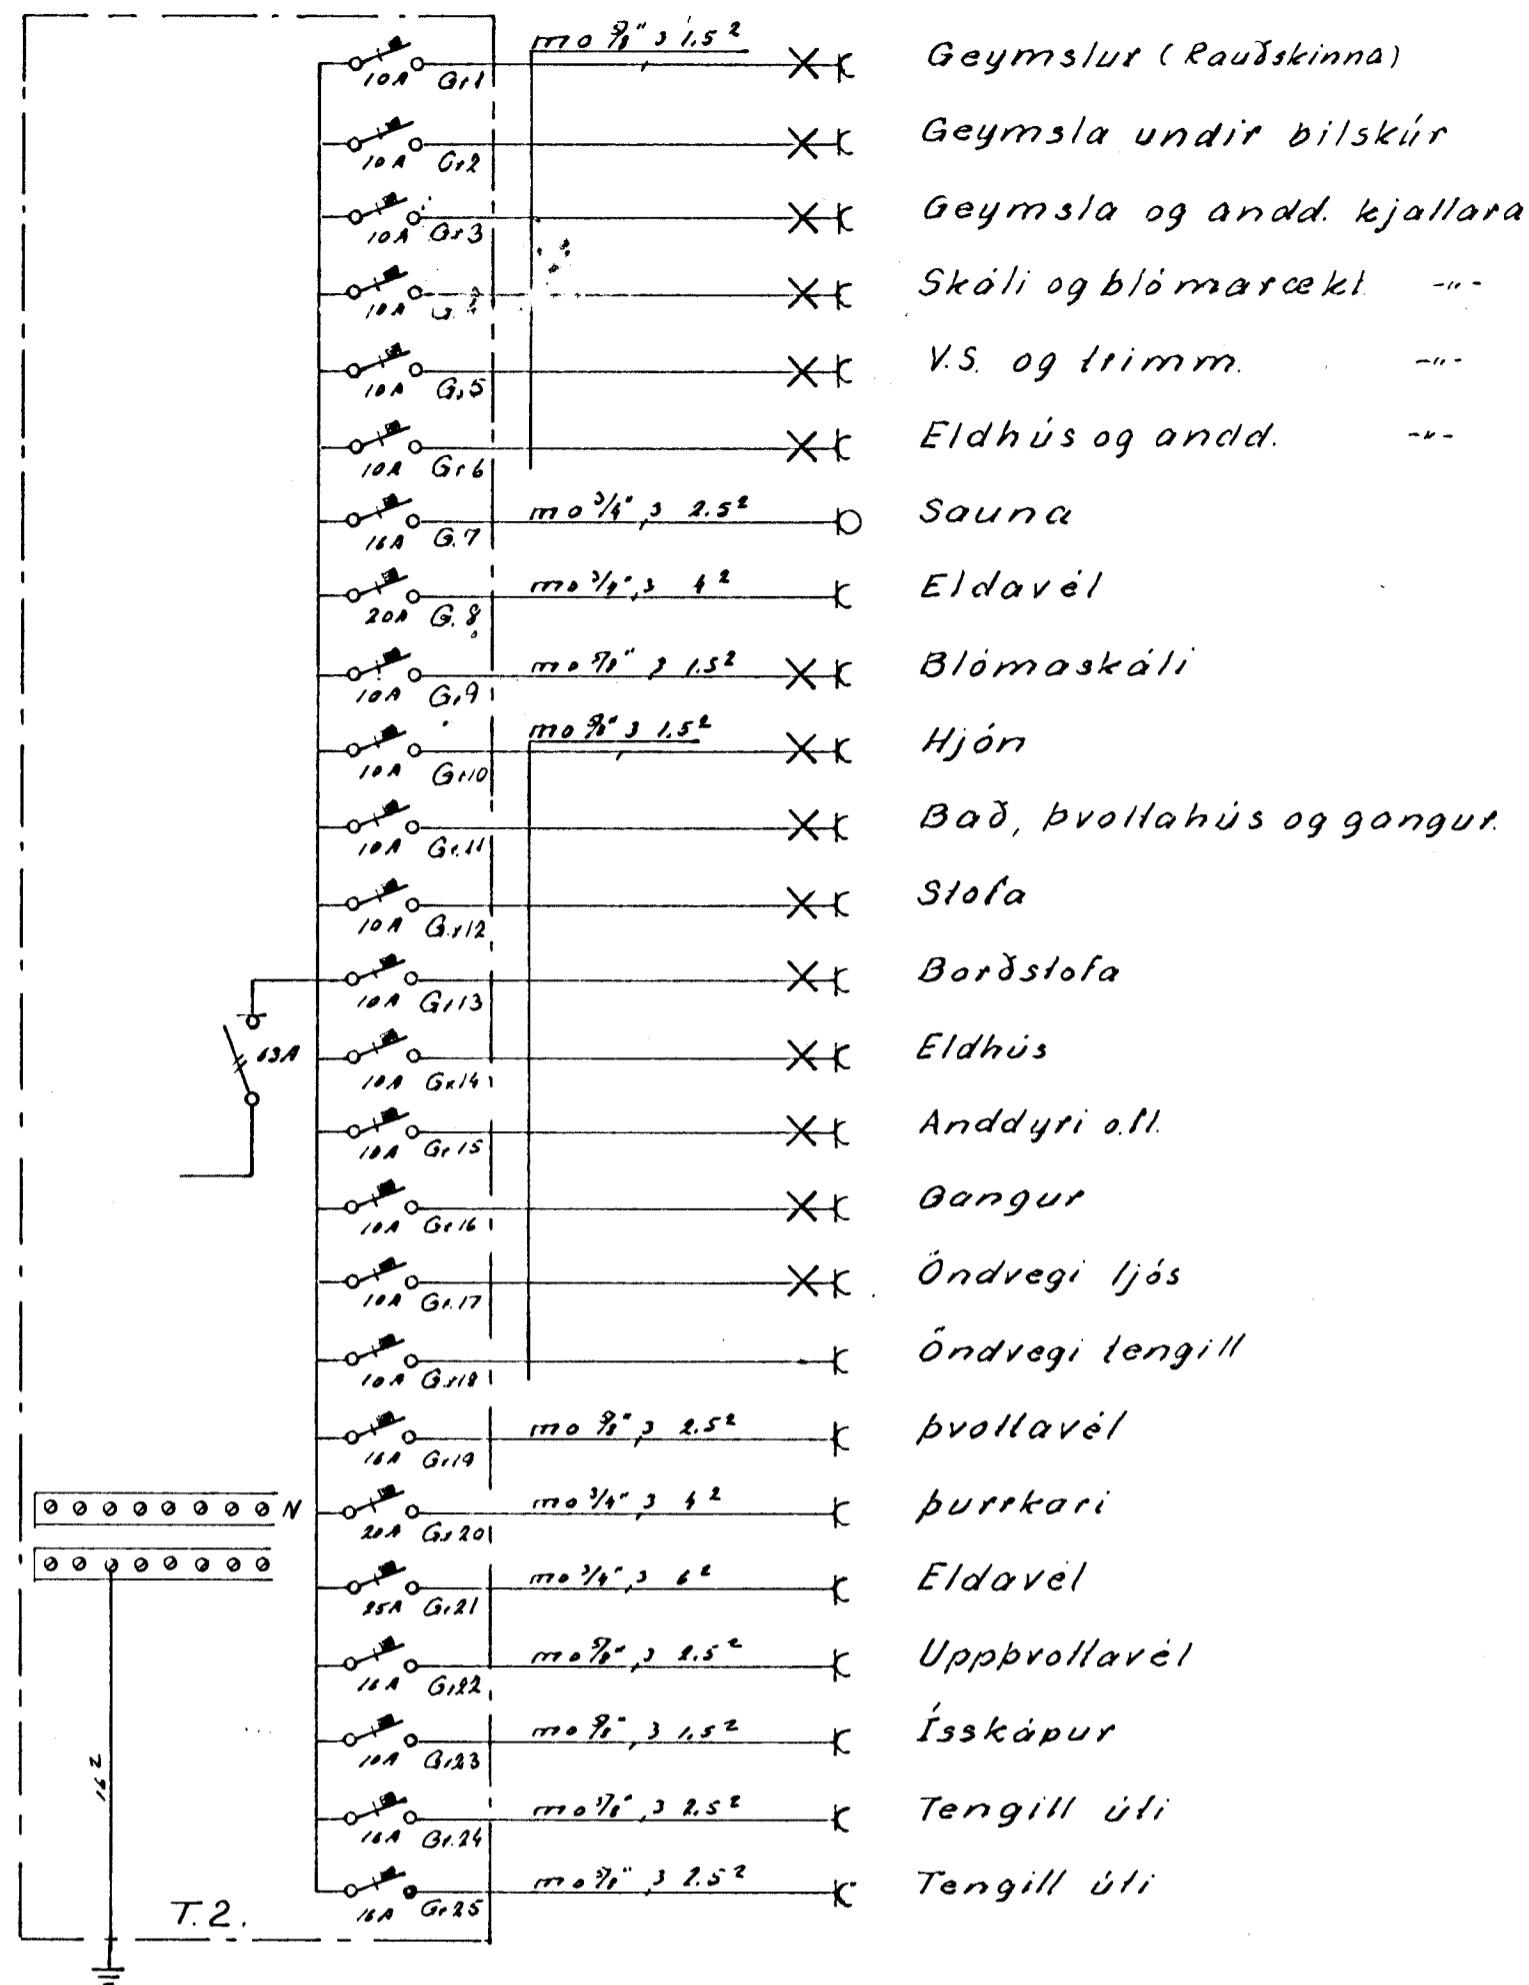 mo 5/8" 3 1.5² Geymslur (Rauðskinna)
10A Gr1
Geymsla undir bilskúr
10A Gr2
Geymsla og andd. kjallara
10A Gr3
Skáli og blómarækt -"-
10A
V.S. og trimm. -"-
10A Gr5
Eldhús og andd. -"-
10A Gr6
mo 3/4", 3 2.5² Sauna
16A G.7
mo 3/4", 3 4² Eldavél
20A G.8
mo 5/8", 3 1.5² Blómaskáli
10A Gr9
mo 5/8" 3 1.5² Hjón
10A Gr10
Bað, þvottahús og gangur.
10A Gr.11
Stofa
10A Gr12
Borðstofa
10A Gr13
63A
Eldhús
10A Gr14
Anddyri o.fl.
10A Gr15
Gangur
10A Gr16
Öndvegi ljós
10A Gr.17
Öndvegi tengill
10A Gr18
mo 5/8", 3 2.5² þvottavél
16A Gr19
N mo 3/4", 3 4² þurrkari
20A Gr20
mo 3/4", 3 6² Eldavél
25A Gr21
mo 5/8", 3 2.5² Uppþvottavél
16A Gr22
mo 5/8", 3 1.5² Ísskápur
10A Gr23
16²
mo 5/8", 3 2.5² Tengill úti
16A Gr.24
mo 5/8", 3 2.5² Tengill úti
16A Gr25
T.2.